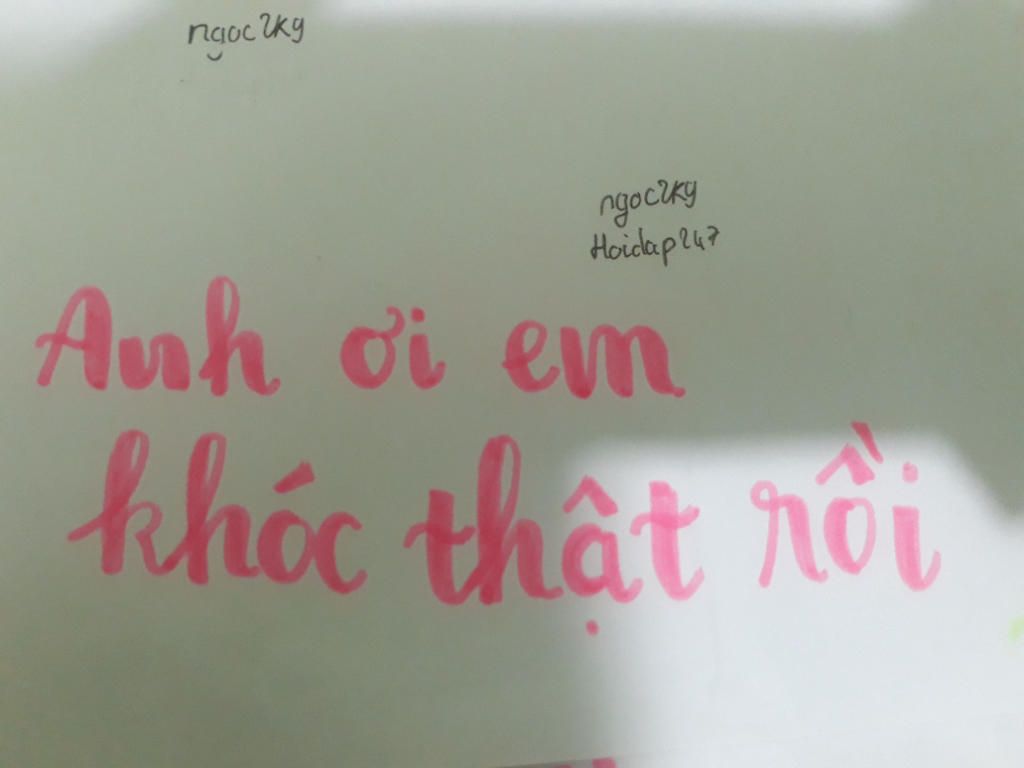 ngoc2kg
ngoc2kg
Hoidap247
Anh ơi em
khóc thật rồi